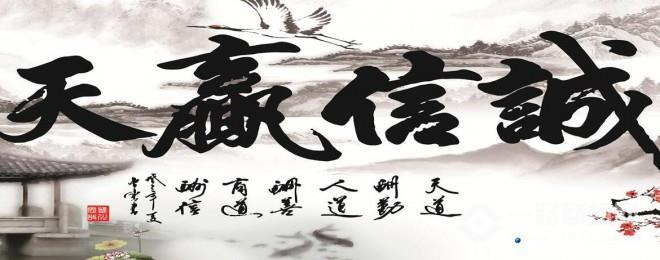 誠信贏天
天道
酬勤
人道
酬善
商道
酬信